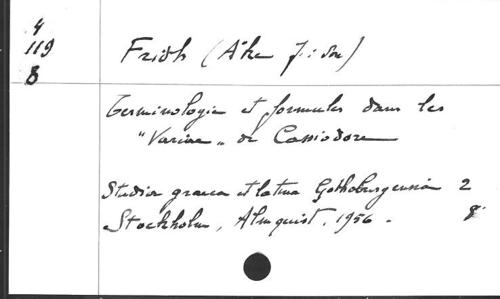 4
119
8
Fridh (Åke J:son)
Terminologie et formules dans les
"Variae" de Cassiodore
Studia graeca et latina Gothoburgensia 2
Stockholm, Almquist, 1956.